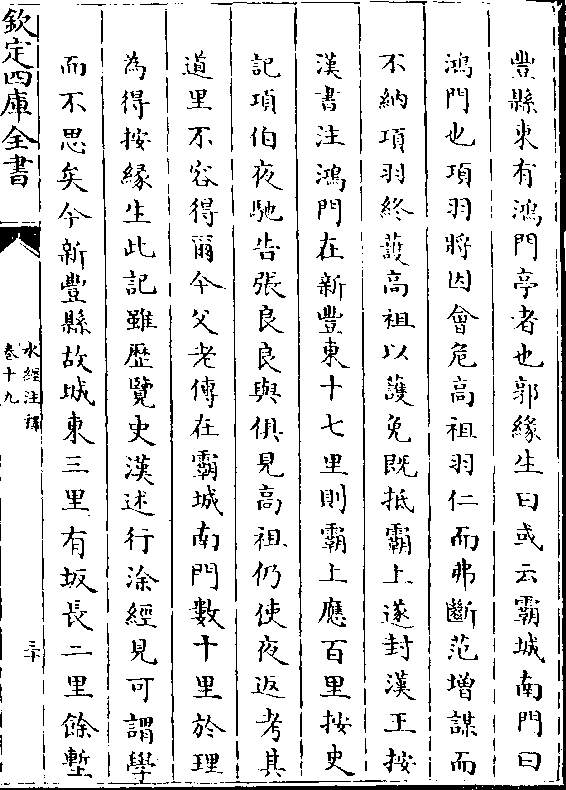 豐縣東有鴻門亭者也郭緣生曰或云霸城南門曰
鴻門也項羽將因會危高祖羽仁而弗斷范增謀而
不納項羽終護高祖以䕶免既抵霸上遂封漢王按
漢書注鴻門在新豐東十七里則霸上應百里按史
記項伯夜馳告張良良與俱見高祖仍使夜返考其
道里不容得爾今父老傳在霸城南門數十里於理
為得按緣生此記雖歴覽史漢述行涂經見可謂學
而不思矣今新豐縣故城東三里有坂長二里餘塹
欽定四庫全書
水經注釋
卷十九
三十